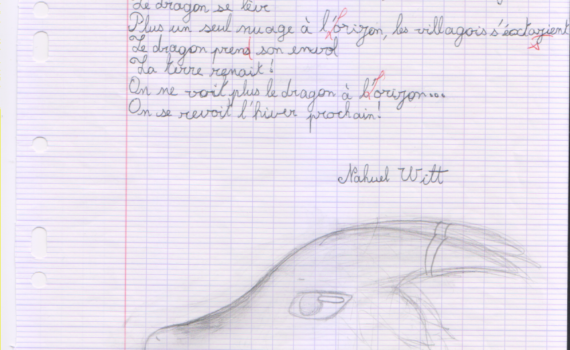 Le dragon se lève
Plus un seul nuage à l'horizon, les villageois s'éxtasient
Le dragon prend son envol
La terre renait!
On ne voit plus le dragon à l'horizon...
On se revoit l'hiver prochain!
Nahuel Witt